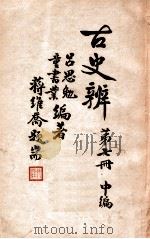 古史辨
第七冊 中編
呂思勉
童書業
編著
蔣維喬題耑